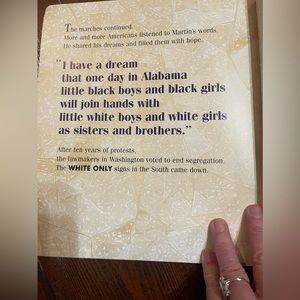 The marches continued.
More and more Americans listened to Martin's words.
He shared his dreams and filled them with hope.
"I have a dream
that one day in Alabama
little black boys and black girls
will join hands with
little white boys and white girls
as sisters and brothers."
After ten years of protests,
the lawmakers in Washington voted to end segregation.
The WHITE ONLY signs in the South came down.